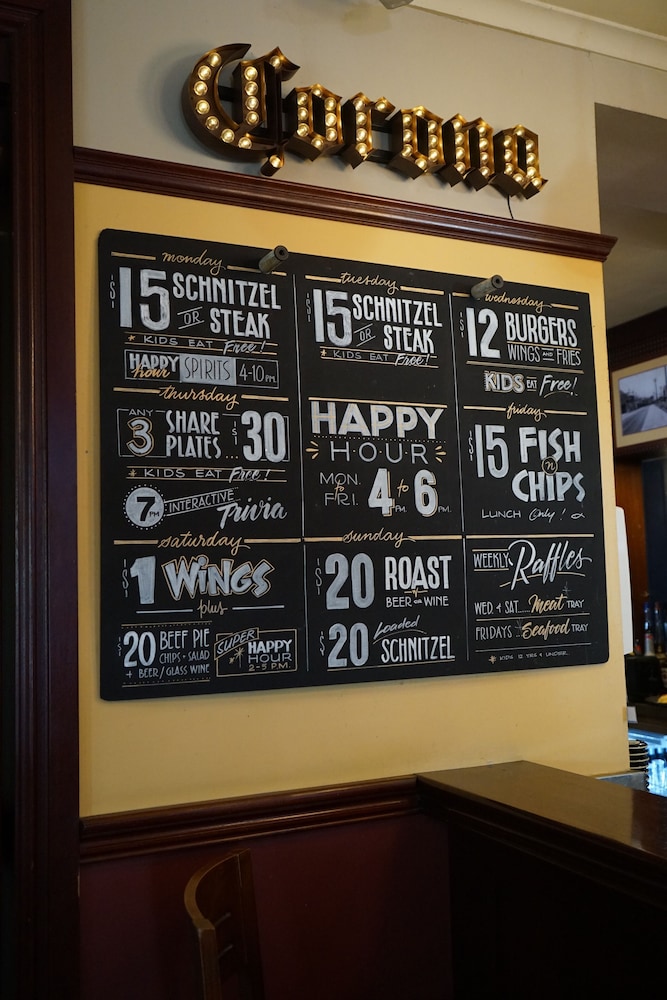 Corona
monday
$15 SCHNITZEL
OR
STEAK
KIDS EAT Free!
HAPPY hour SPIRITS 4-10 PM.
tuesday
$15 SCHNITZEL
OR
STEAK
KIDS EAT Free!
wednesday
$12 BURGERS
WINGS AND FRIES
KIDS EAT Free!
thursday
ANY
3 SHARE
PLATES... $30
KIDS EAT Free!
7PM INTERACTIVE
Trivia
HAPPY
HOUR
MON. to FRI. 4PM to 6PM.
friday
$15 FISH
n
CHIPS
LUNCH Only!
saturday
$1 WINGS
plus
$20 BEEF PIE
CHIPS + SALAD
+ BEER/GLASS WINE
SUPER HAPPY
HOUR
2-5 P.M.
sunday
$20 ROAST
BEER OR WINE
$20 Loaded
SCHNITZEL
WEEKLY Raffles
WED. & SAT..... Meat TRAY
FRIDAYS Seafood TRAY
KIDS 12 YRS & UNDER.